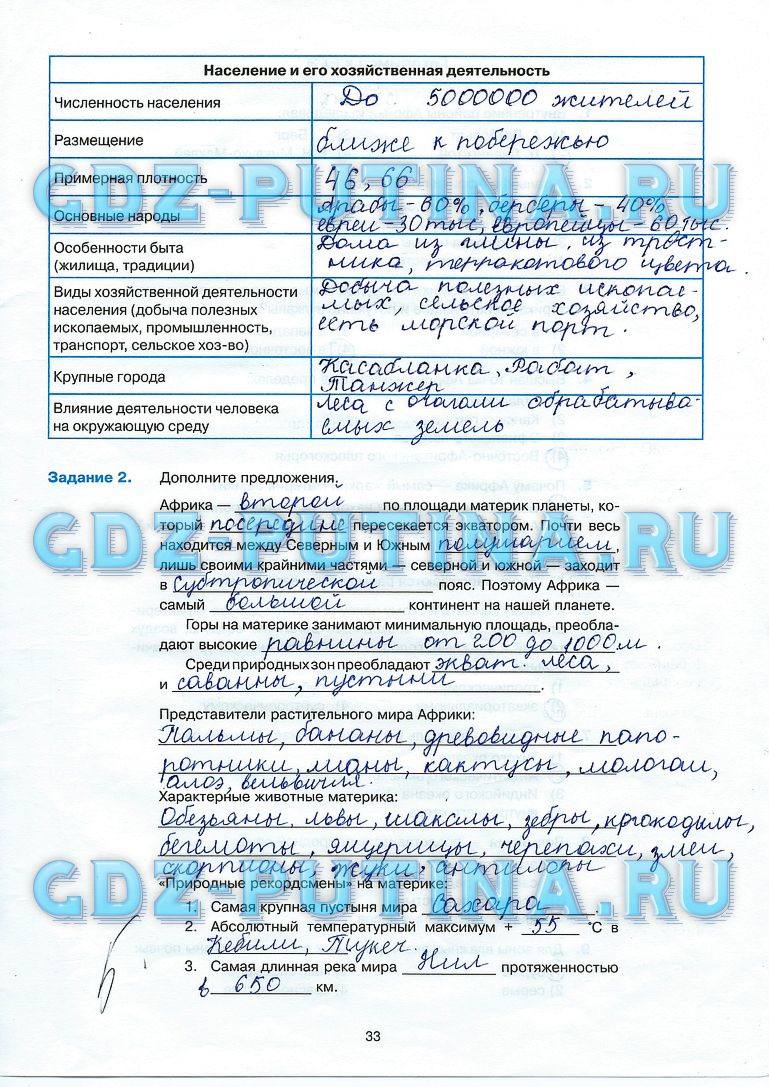 Население и его хозяйственная деятельность
Численность населения До 5000000 жителей
Размещение ближе к побережью
GDZ-PUTINA.RU
Примерная плотность 46,66
Основные народы Арабы – 60%, берберы – 40%
евреи – 30 тыс, европейцы – 60 тыс.
Особенности быта Дома из глины, из трост-
(жилища, традиции) ника, терракотового цвета.
Виды хозяйственной деятельности Добыча полезных ископае-
населения (добыча полезных мых, сельское хозяйство,
ископаемых, промышленность, есть морской порт.
транспорт, сельское хоз-во)
Крупные города Касабланка, Рабат,
Танжер
Влияние деятельности человека Леса с очагами обрабатыва-
на окружающую среду емых земель
Задание 2. Дополните предложения.
Африка — второй по площади материк планеты, ко-
торый посередине пересекается экватором. Почти весь
GDZ-PUTINA.RU
находится между Северным и Южным полушарием,
лишь своими крайними частями — северной и южной — заходит
в субтропической пояс. Поэтому Африка —
самый большой континент на нашей планете.
Горы на материке занимают минимальную площадь, преобла-
дают высокие равнины от 200 до 1000 м.
Среди природных зон преобладают экват. леса,
и саванны, пустыни.
Представители растительного мира Африки:
Пальмы, бананы, древовидные папо-
ротники, лианы, кактусы, молочаи,
алоэ, вельвичия.
Характерные животные материка:
Обезьяны, львы, шакалы, зебры, крокодилы,
бегемоты, ящерицы, черепахи, змеи,
скорпионы, жуки, антилопы
GDZ-PUTINA.RU
«Природные рекордсмены» на материке:
1. Самая крупная пустыня мира Сахара.
2. Абсолютный температурный максимум + 55 °С в
Кебили, Тукеч.
3. Самая длинная река мира Нил протяженностью
в 650 км.
33